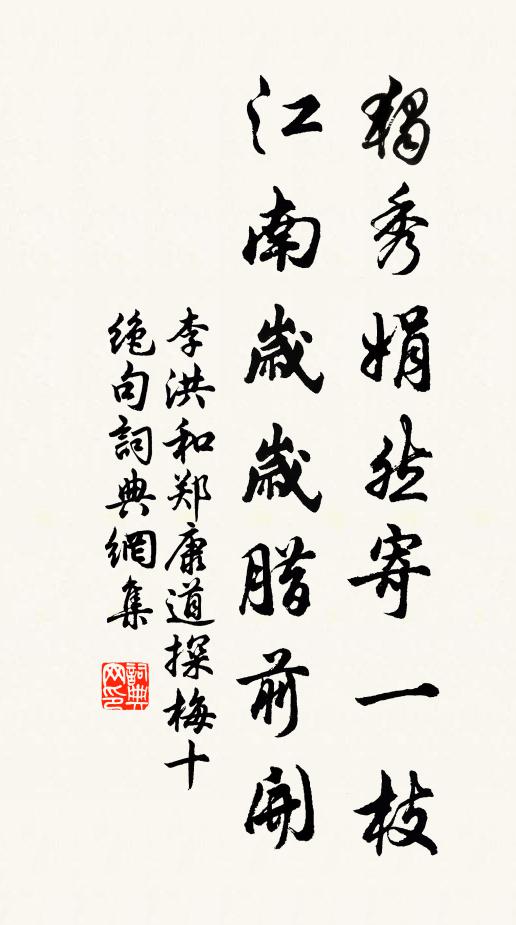 獨秀娟然寄一枝
江南歲歲腊前開
李洪和郑康道探梅十
绝句詞典網集
詞典网印